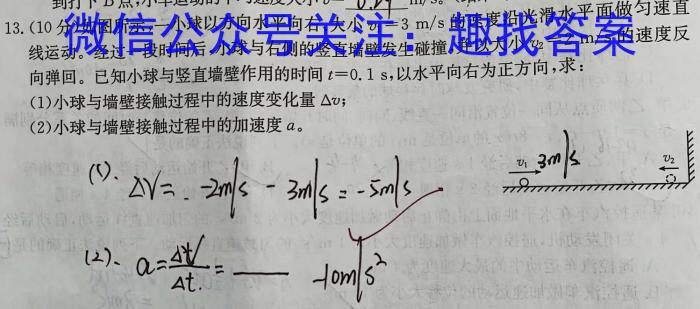 0.29
13.(10分)如图所示,一小球以方向水平向右、大小v₁=3 m/s的速度沿光滑水平面做匀速直
线运动。经过一段时间后,小球与右侧的竖直墙壁发生碰撞,并以大小v₂ m/s的速度反
向弹回。已知小球与竖直墙壁作用的时间t=0.1 s,以水平向右为正方向,求:
(1)小球与墙壁接触过程中的速度变化量Δv;
(2)小球与墙壁接触过程中的加速度a。
微信公众号关注:趣找答案
(1). ΔV= -2m/s - 3m/s = -5m/s
v₁ 3m/s v₂
(2). a= = -10m/s²
Δt.